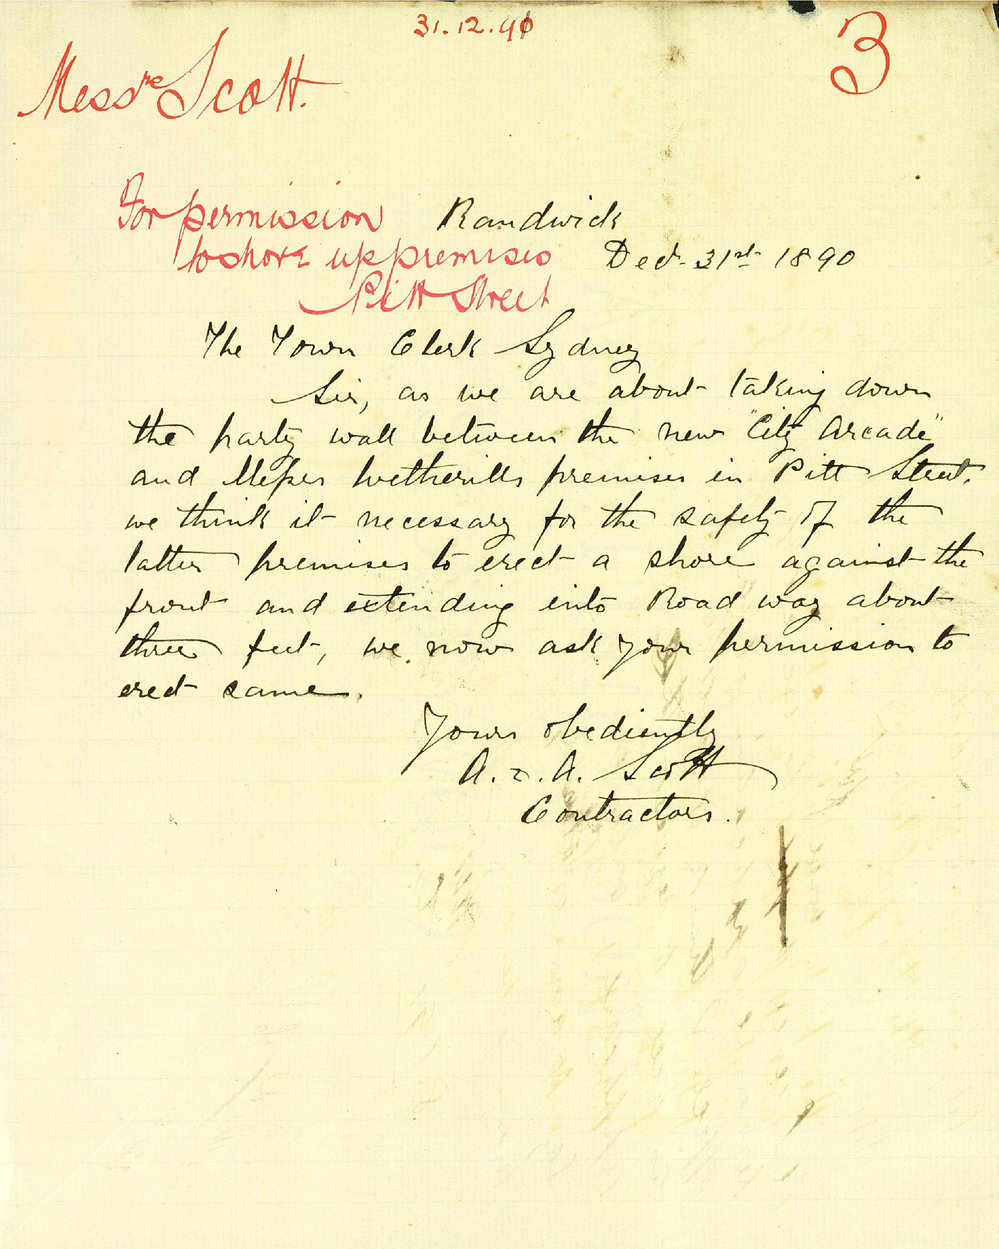 31.12.90
3
Messrs Scott.
For permission
to shore up premises
Pitt Street
Randwick
Decr. 31st 1890
The Town Clerk Sydney
Sir, as we are about taking down
the party wall between the new "City Arcade"
and Messrs Wetherills premises in Pitt Street.
we think it necessary for the safety of the
latter premises to erect a shore against the
front and extending into Road way about
three feet, we now ask your permission to
erect same.
Yours obediently
A. & A. Scott
Contractors.